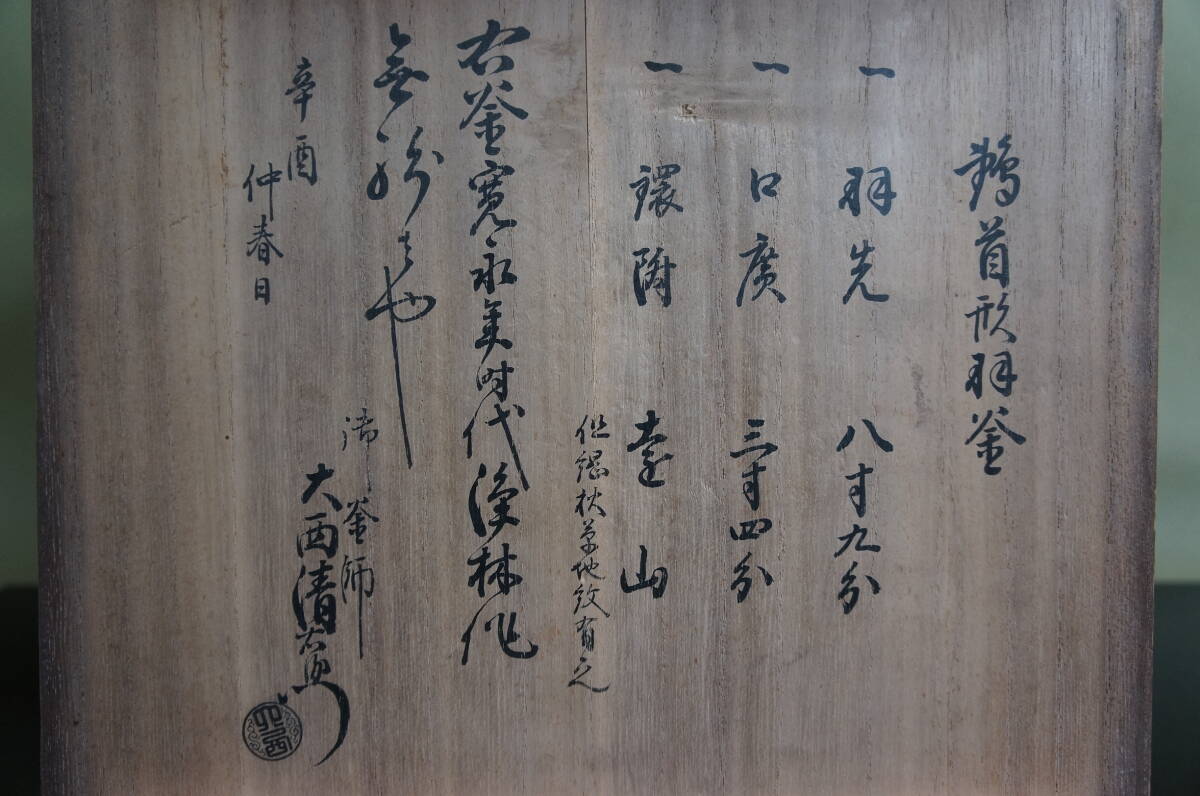 鶴首形羽釜
一 羽先 八寸九分
一 口廣 三寸四分
一 鐶附 遠山
但 秋草地紋有之
右釜寛永年時代浄林作
無紛者也
辛酉
仲春日
御釜師
大西清右衛門
大西